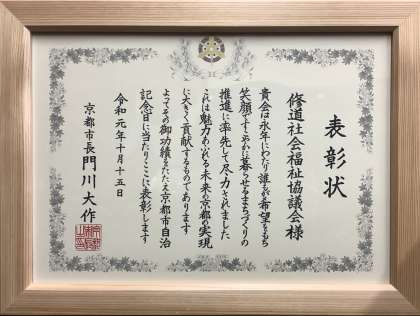 表彰状
修道社会福祉協議会様
貴会は永年にわたり誰もが希望をもち
笑顔ですこやかに暮らせるまちづくりの
推進に率先して尽力されました
これは魅力あふれる未来の京都の実現
に大きく貢献するものであります
よってその御功績をたたえ京都市自治
記念日に当たりここに表彰します
令和元年十月十五日
京都市長 門川大作